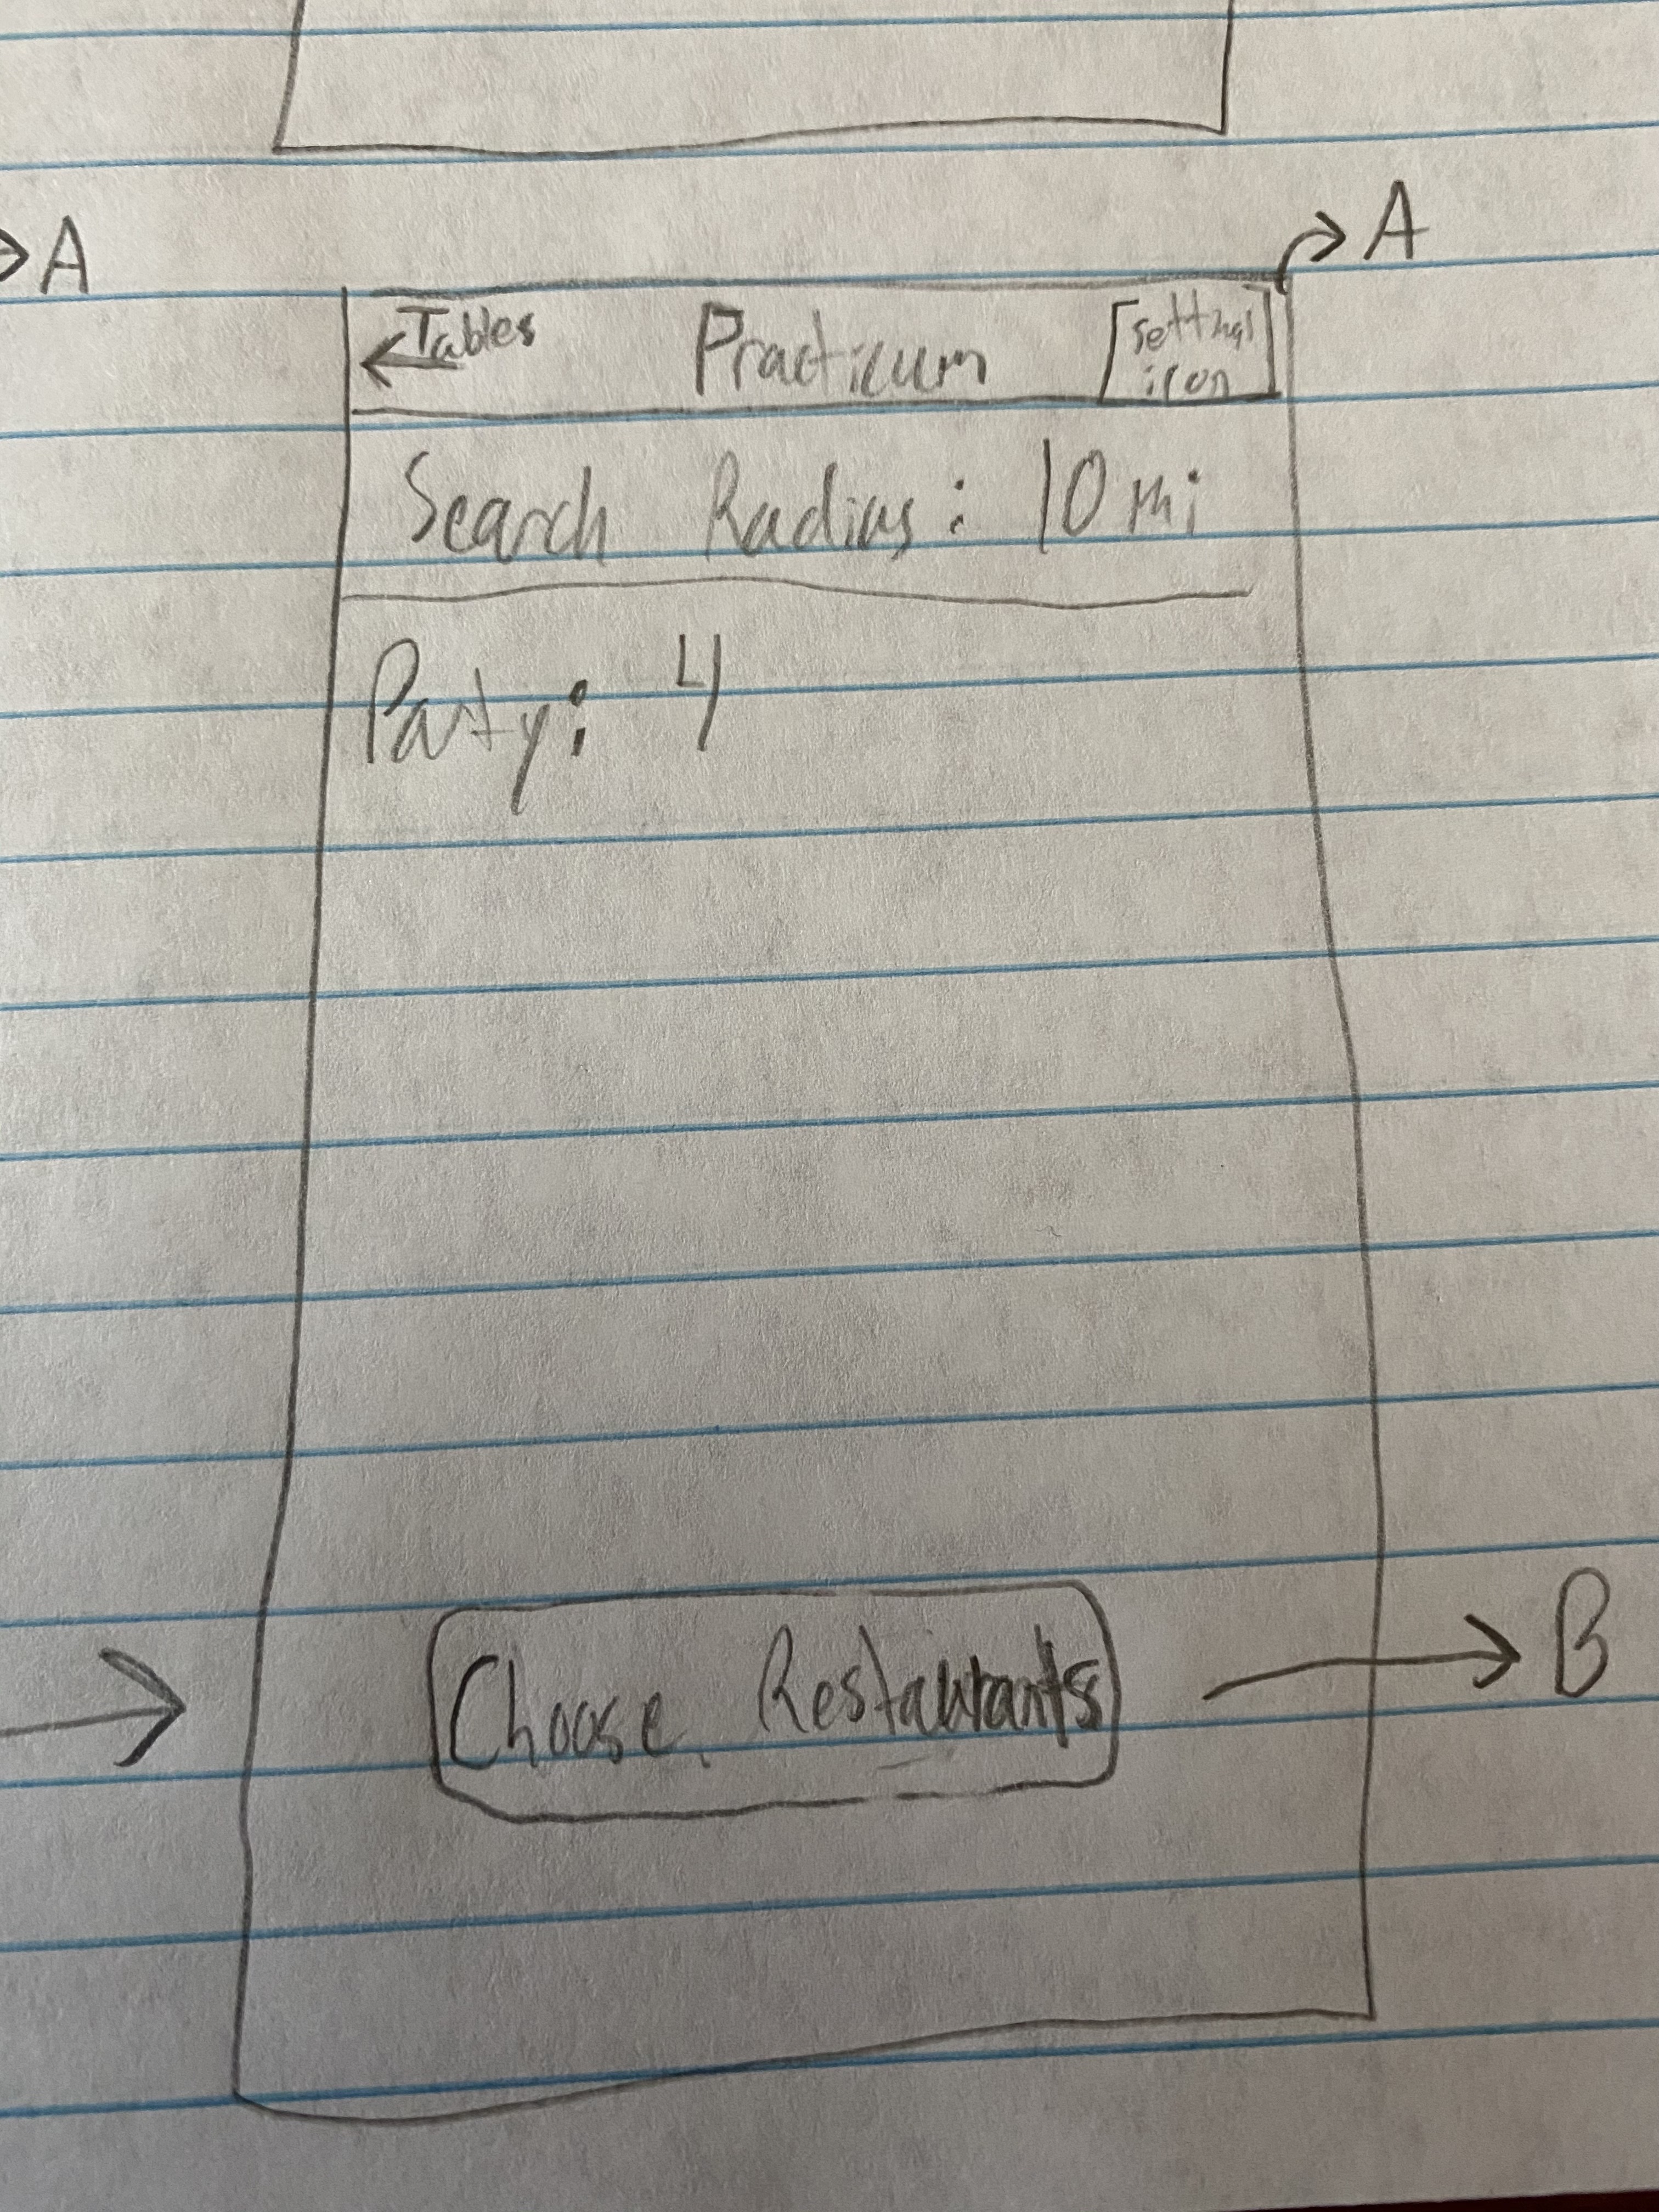 A
A
Tables Practicum [settings icon]
Search Radius: 10 mi
Party: 4
Choose Restaurants
B